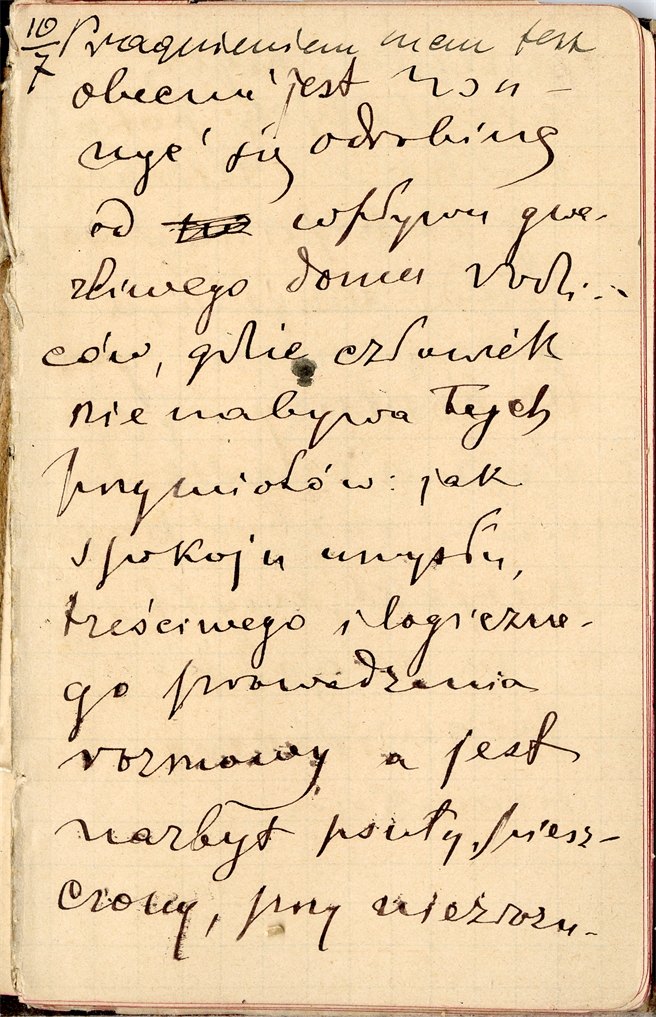 10/7 Pragnieniem mem jest
jest
się odrobinę
od wpływu gwa-
rliwego domu rodzi-
ców, gdzie człowiek
nie nabywa tych
przymiotów: jak
spokoju umysłu,
treściwego i logiczne-
go prowadzenia
rozmowy a jest
nazbyt psuty, piesz-
czony, przy niezrozu-